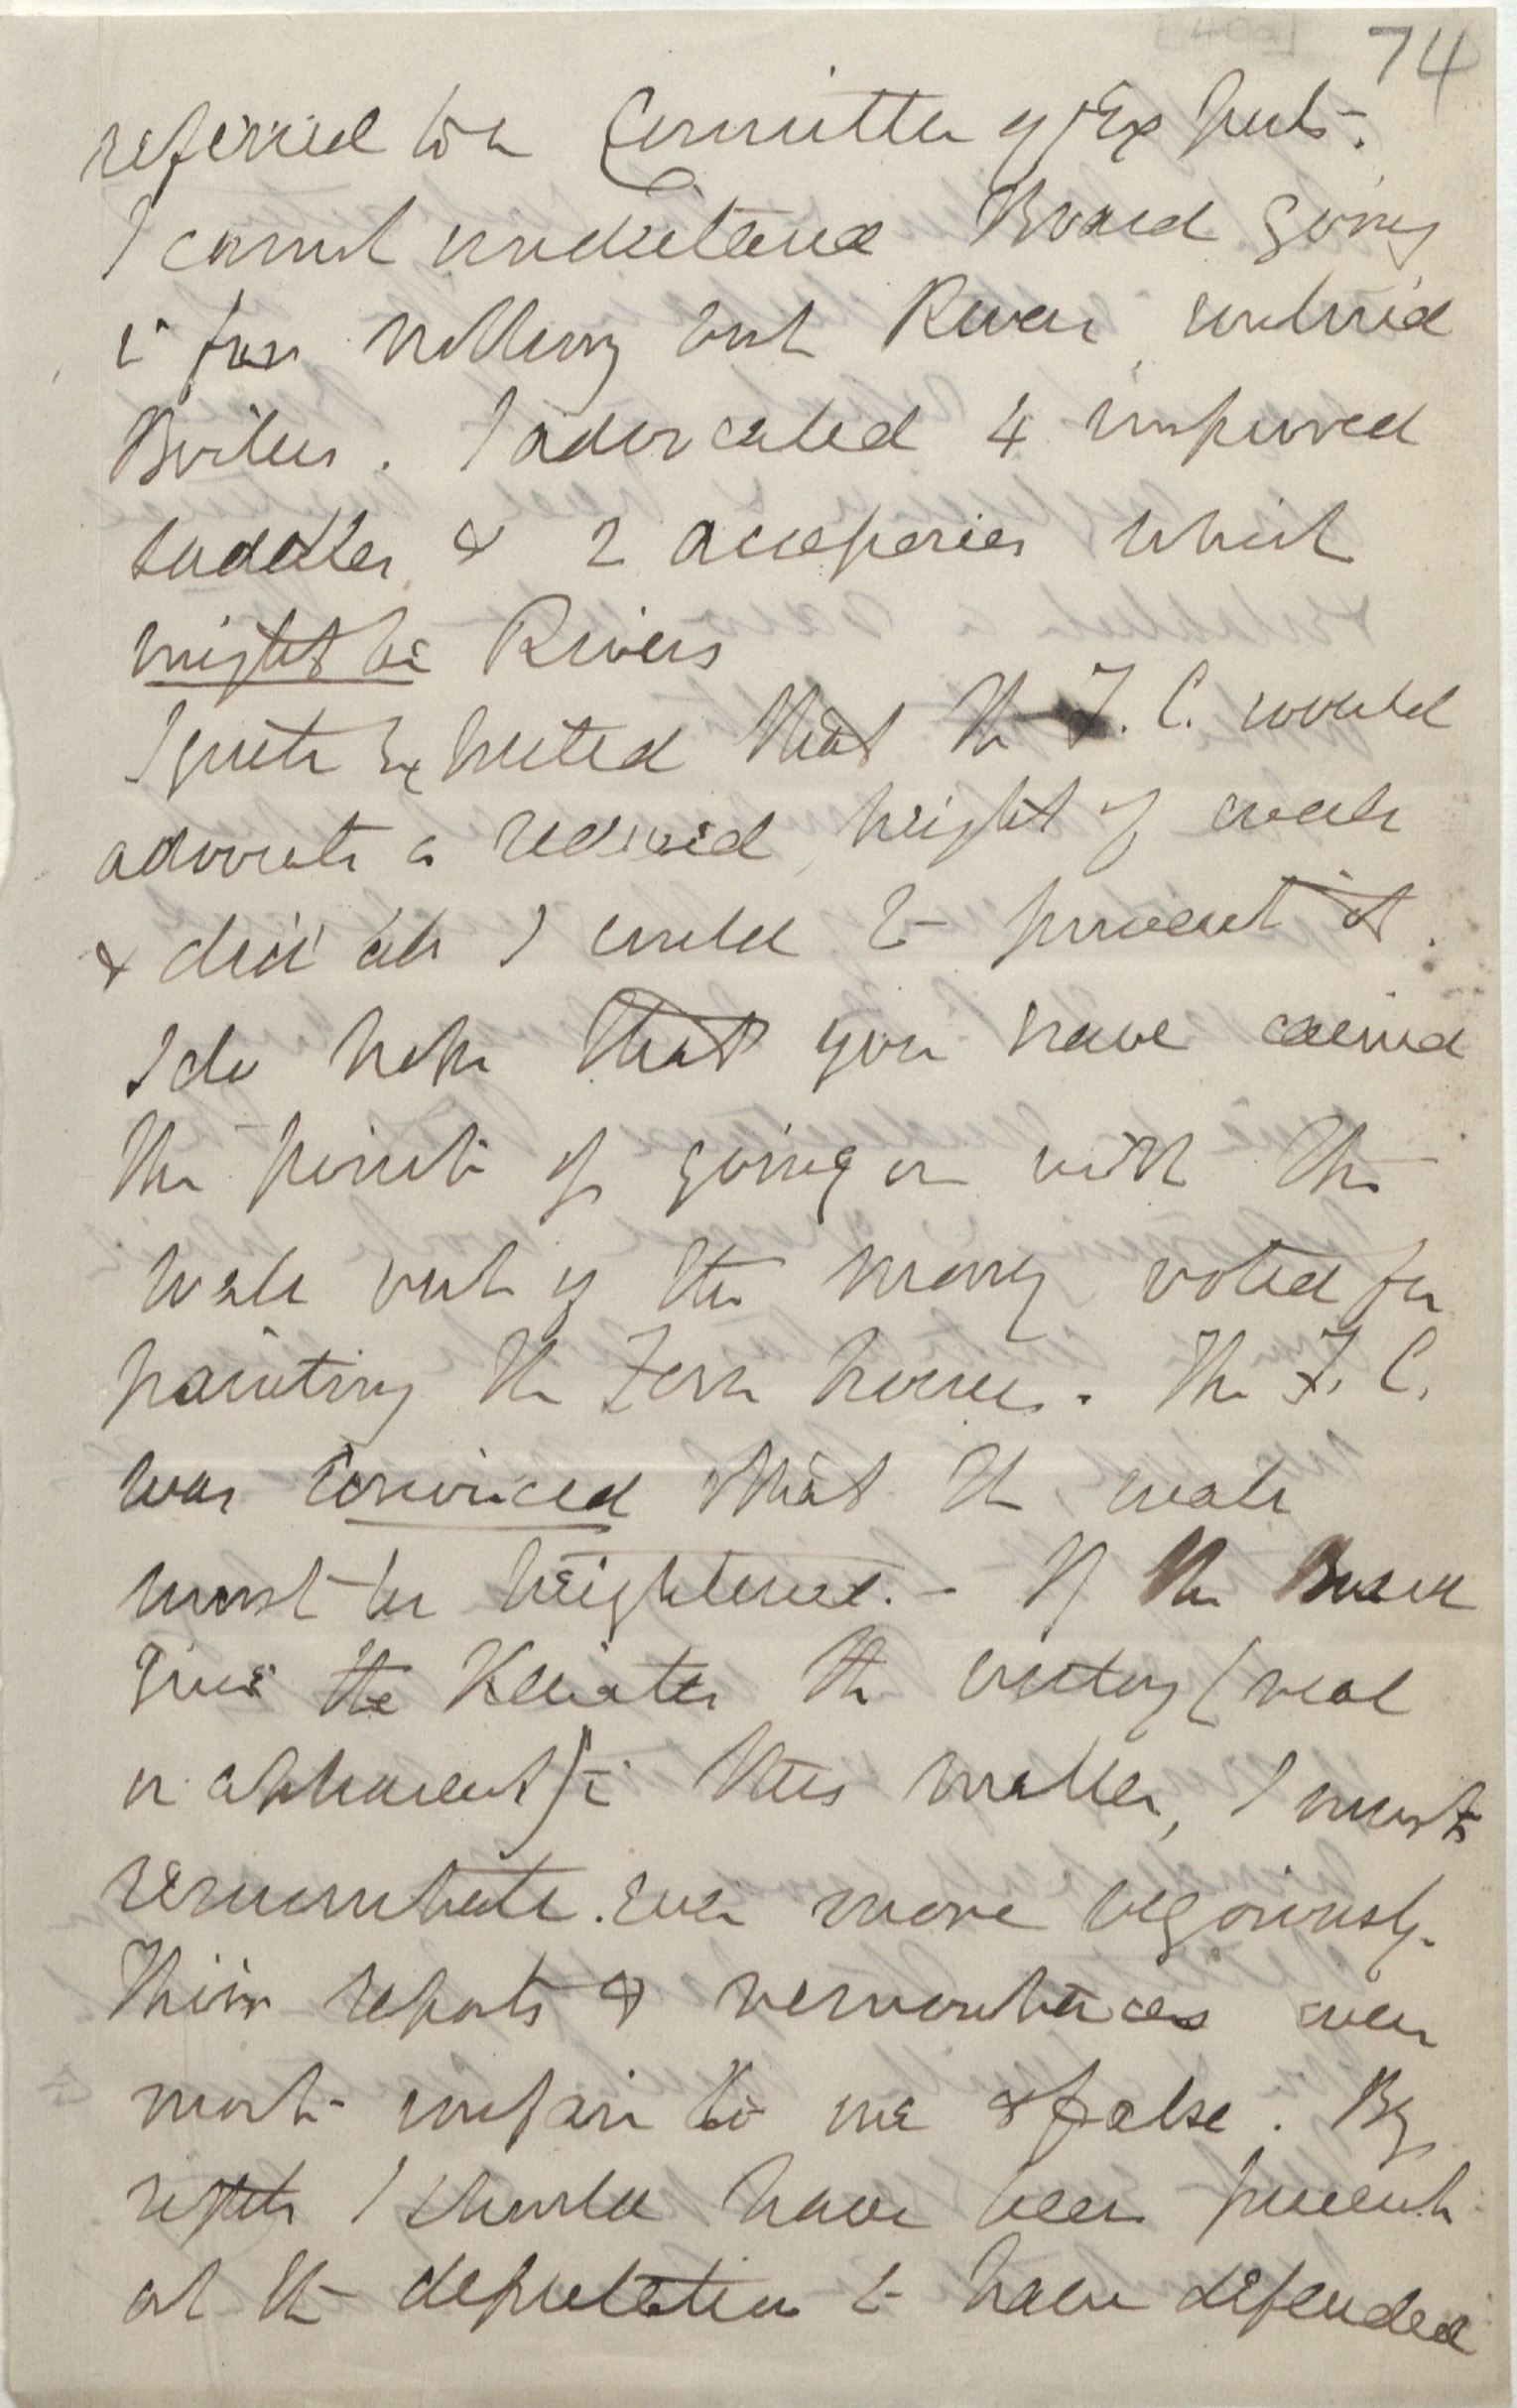 74
referred to a Committee of Experts.
I cannot understand Board going
in for nothing but Rivers untried
Boilers. I advocated 4 improved
saddles & 2 accessories which
might be Rivers
I quite expected that the F. C. would
advocate a reduced height of wall
& did all I could to prevent it.
I do hope that you have carried
the point of going on with the
wall out of the money voted for
painting the Fern house. The F. C.
was convinced that the wall
must be heightened. - If the Board
gives the the victory (real
or apparent) in this matter, I must
remonstrate even more vigorously.
Their reports & remonstrances were
most unfair to me & false. By
rights I should have been present
at the deputation to have defended